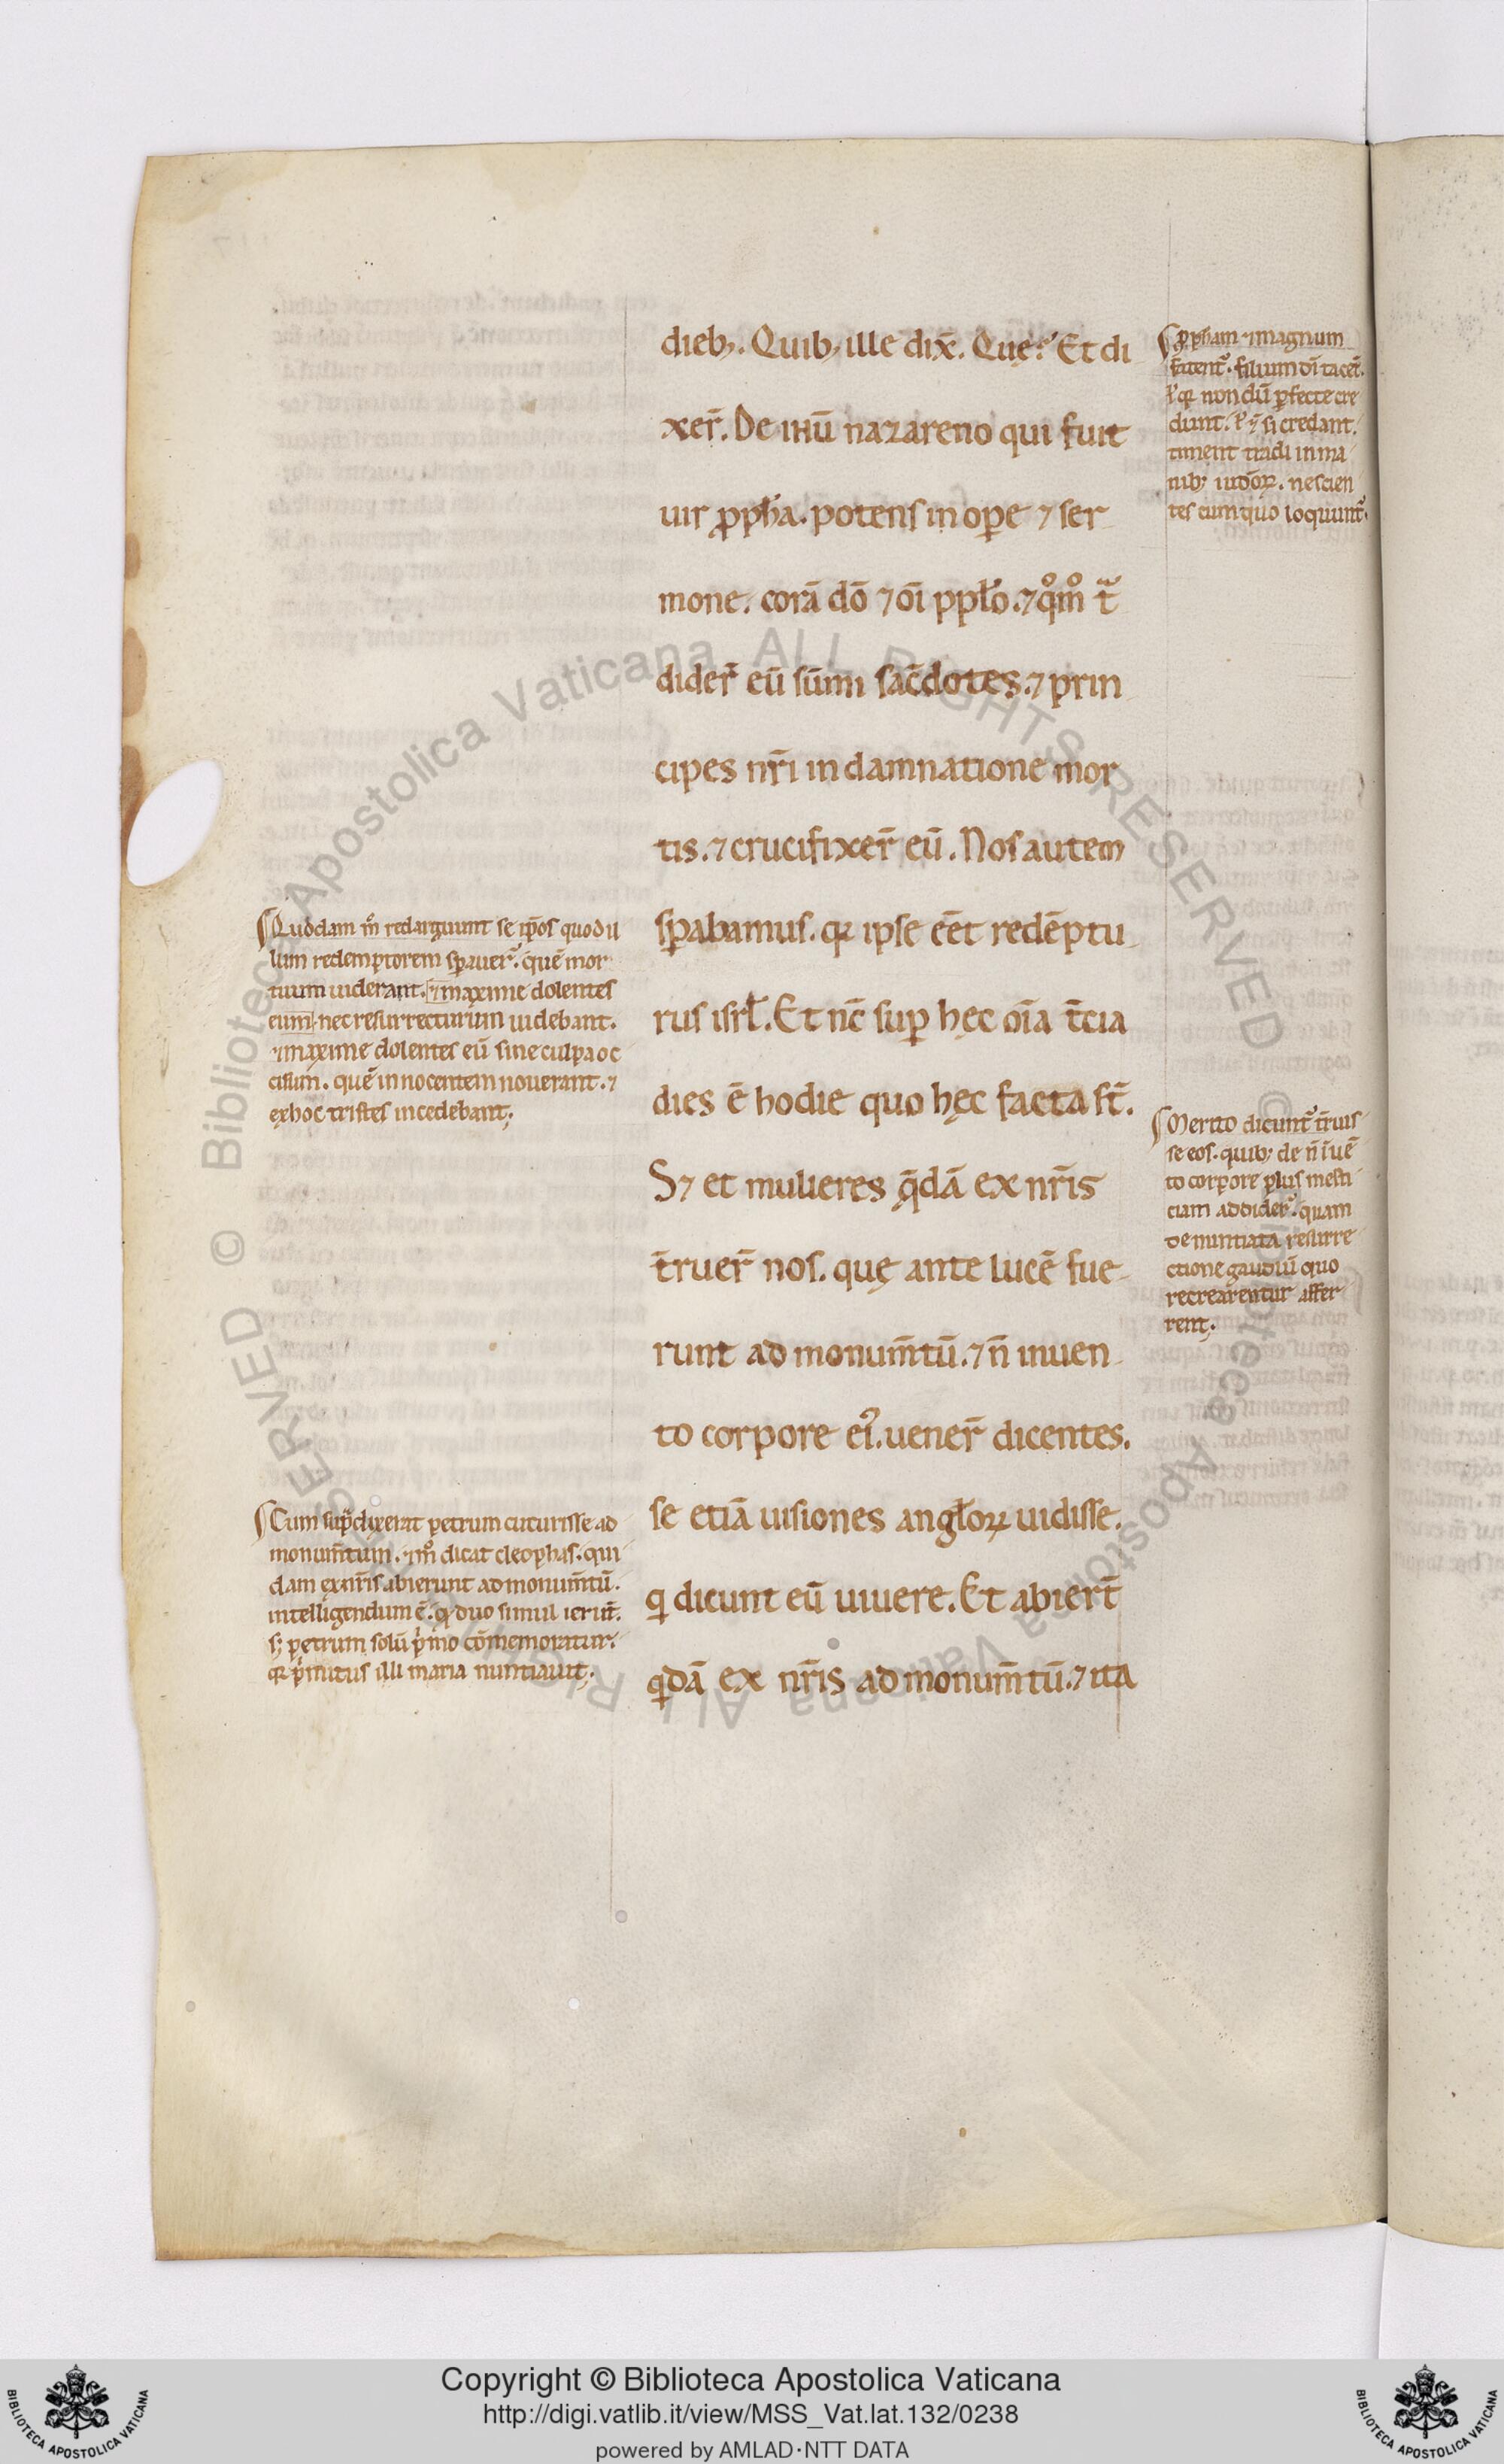 dieb;. Quib; ille dix̄. Quę? Et di
xer̄. De ihū nazareno qui fuit
uir ꝓph̄a. potens in oꝑe ⁊ ser
mone. corā dō ⁊ oī ppło. ⁊ qͦmͦ t̄
dider̄ eū sūmi sac̄dotes. ⁊ prin
cipes nr̄i in damnatione mor
tis. ⁊ crucifixer̄ eū. Nos autem
sꝑabamus. qꝛ ipse eēt redēptu
rus isrł. Et nc̄ suꝑ hęc oīa t̄cia
dies ē hodie quo hęc facta st̄.
S⁊ et mulieres q̄dā ex nr̄is
t̄ruer̄ nos. quę ante lucē fue
runt ad monum̄tū. ⁊ n̄ inuen
to corpore ei᾽. uener̄ dicentes.
se etiā uisiones angłoꝝ uidisse.
q dicunt eū uiuere. Et abiert̄
qdā ex nr̄is ad monum̄tū. ⁊ ita
ꝓpham ⁊ magnum
fatent᾽. filium dī tacet̄.
ł qꝛ non dū ꝑfecte cre
dunt. ł ⁊ si credant.
timent tradi in ma
nib; iudoꝝ. nescien
tes cum quo loquunt᾽.
Quodam m̊ redarguunt se ip̄os quod il
lum redemptorem sꝑauer᾽. quē mor
tuum uiderant. ⁊ maxime dolentes
eum nec resurrecturum uidebant.
⁊ maxime dolentes eū sine culpa oc
cisum. quē innocentem nouerant. ⁊
ex hoc tristes incedebant;
Merito dicunt᾽ t̄ruis
se eos. quib; de n̄ īuē
to corpore plus mesti
ciam addider᾽. quam
de nuntiata resurre
ctione gaudiū quo
recrearentur affer
rent;
Cum sup̄ dixerat petrum cucurisse ad
monum̄tum. ⁊ m̊ dicat cleophas. qui
dam ex nr̄is abierunt ad monum̄tū.
intelligendum ē. qđ duo simul ierūt.
s; petrum solū p̄mo cōmemoratur.
qꝛ p̄mitus illi maria nuntiauit;
Copyright © Biblioteca Apostolica Vaticana
http://digi.vatlib.it/view/MSS_Vat.lat.132/0238
powered by AMLAD·NTT DATA